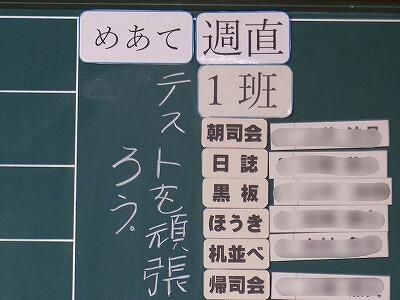 めあて
週直
1班
テストを頑張
ろう.
朝司会
日誌
黒板
ほうき
机並べ
帰司会